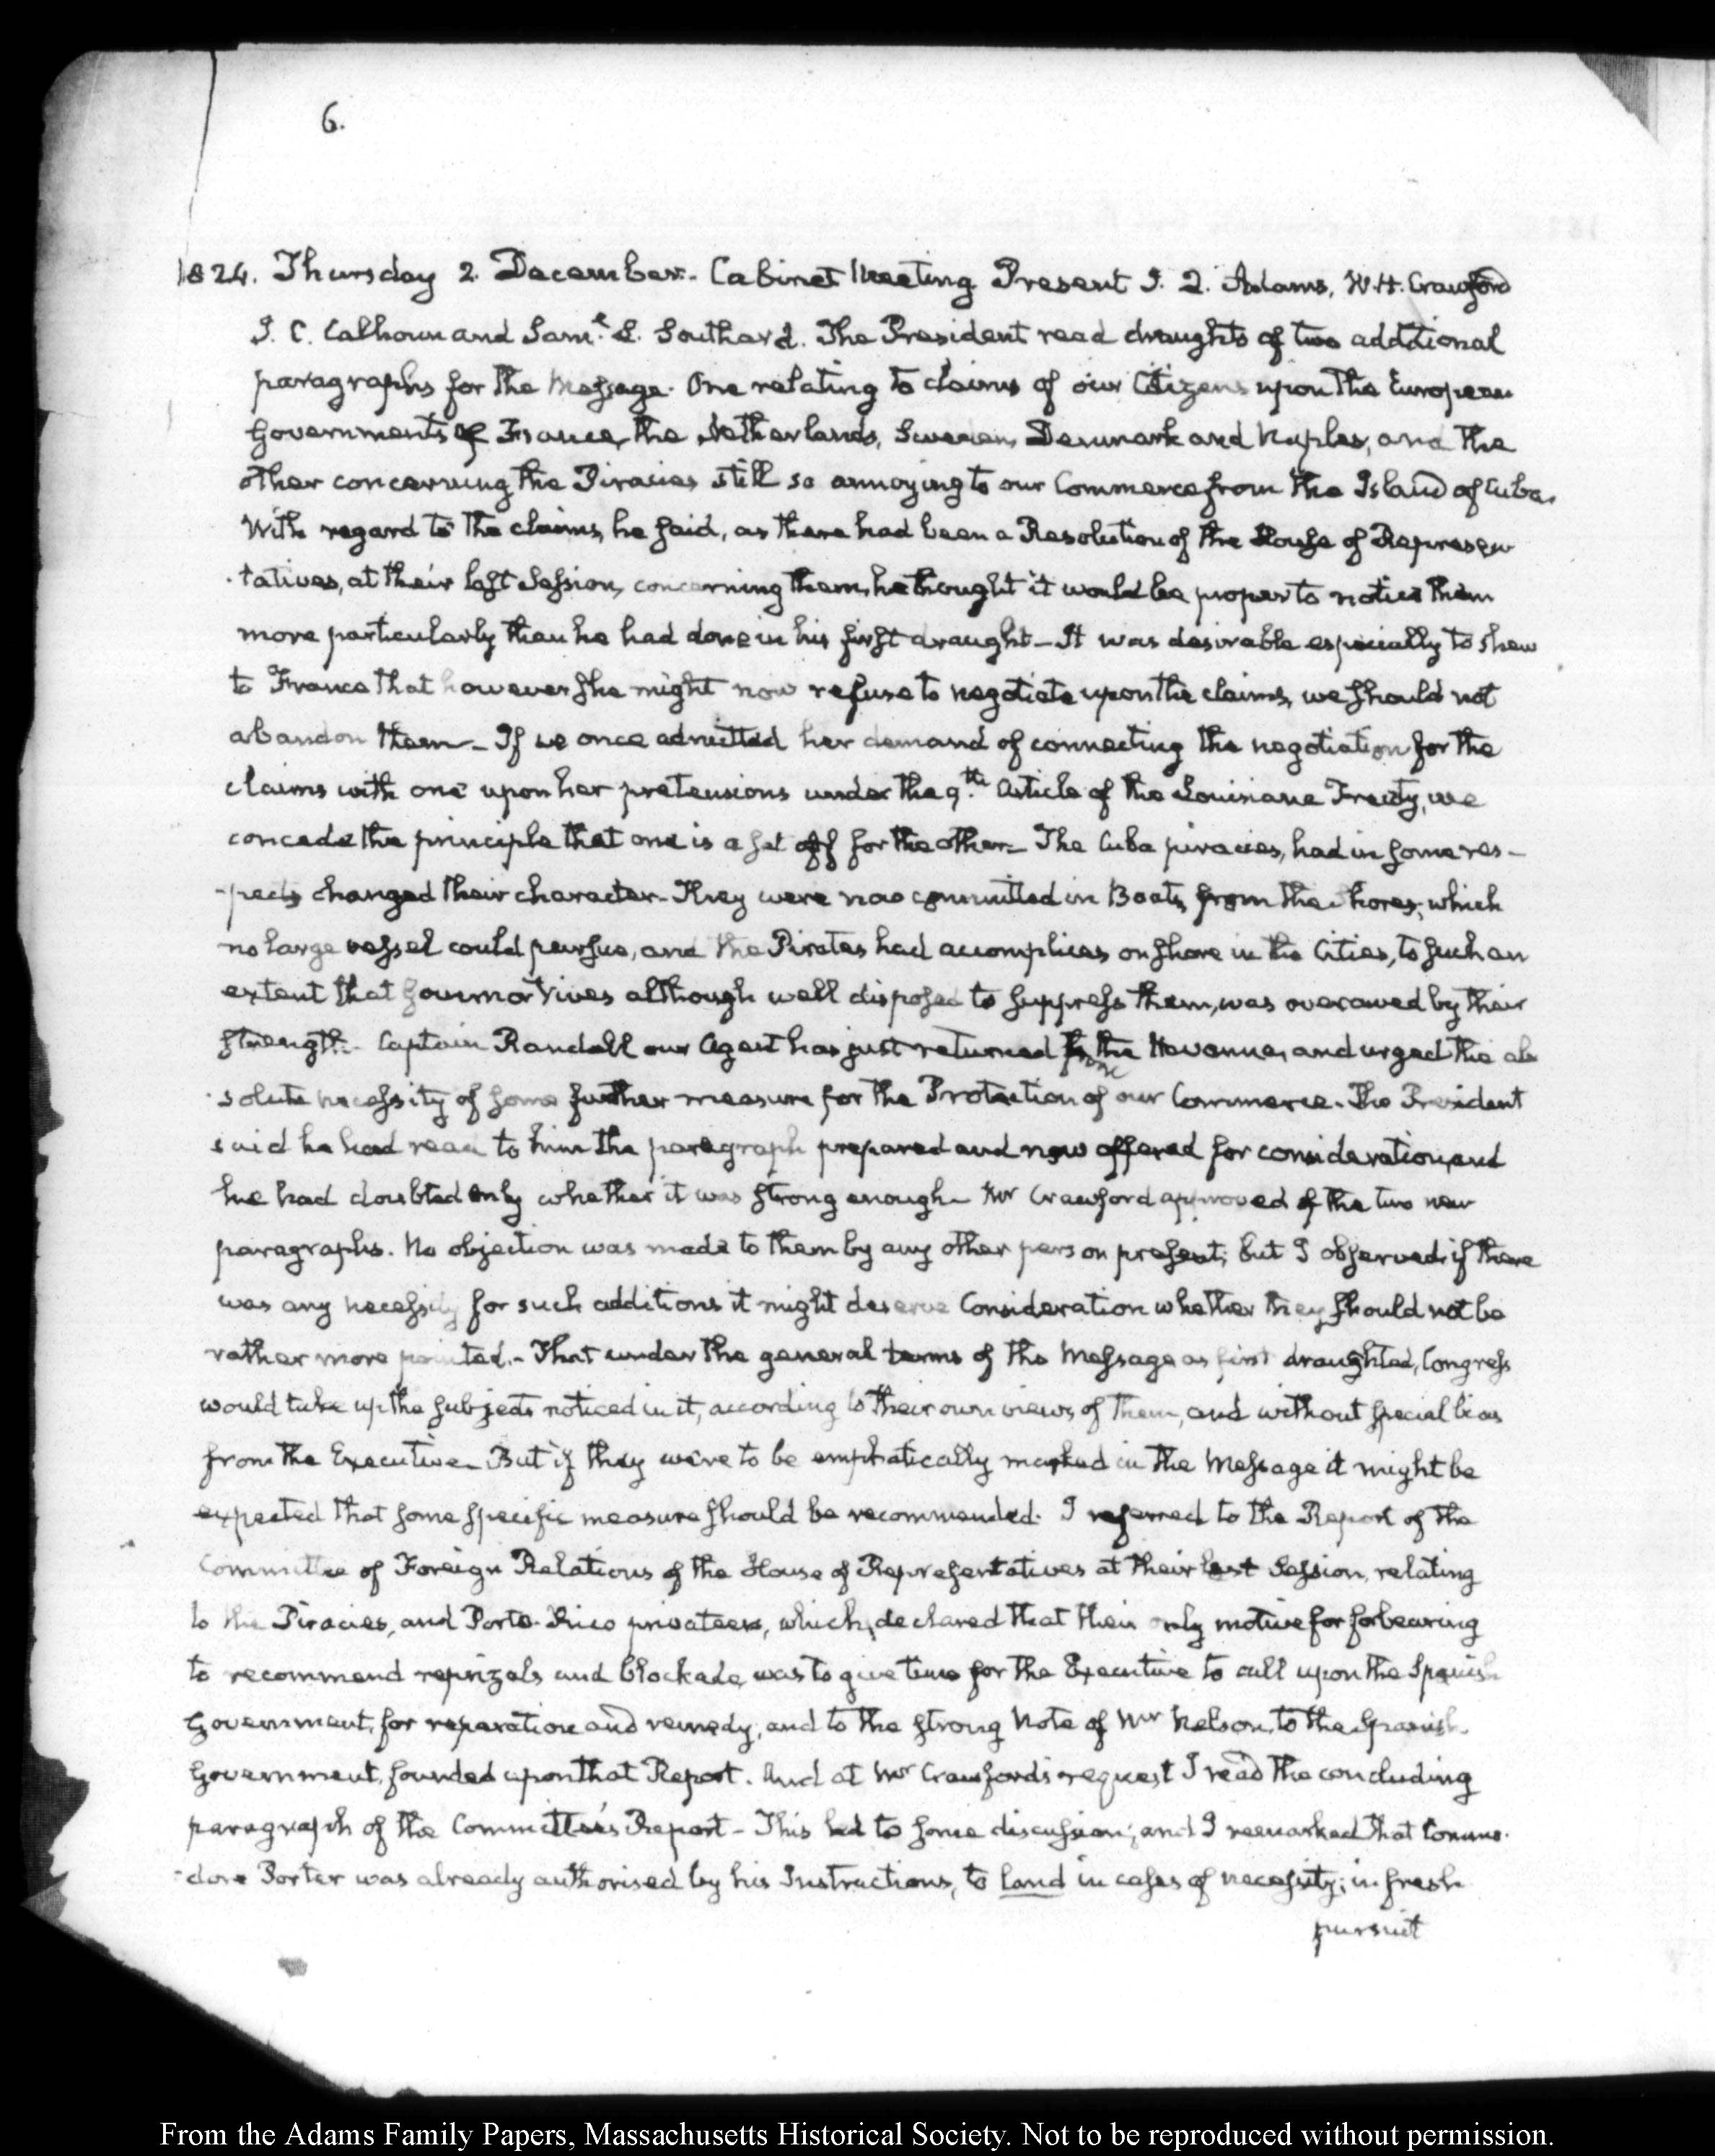 6.
1824. Thursday 2. December. Cabinet Meeting Present J. Q. Adams, W. H. Crawford
J. C. Calhoun and Saml. L. Southard. The President read draughts of two additional
paragraphs for the Message. One relating to claims of our Citizens upon the European
Governments of France, the Netherlands, Sweden, Denmark and Naples, and the
other concerning the Piracies still so annoying to our Commerce from the Island of Cuba.
With regard to the claims, he said, as there had been a Resolution of the House of Represen
-tatives, at their last Session, concerning them, he thought it would be proper to notice them
more particularly than he had done in his first draught - It was desirable especially to shew
to France that however she might now refuse to negotiate upon the claims, we should not
abandon them - If we once admitted her demand of connecting the negotiation for the
claims with one upon her pretensions under the 9th. Article of the Louisiana Treaty, we
concede the principle that one is a set off for the other - The Cuba piracies, had in some res-
-pects changed their character - They were now committed in Boats, from the shores, which
no large vessel could pursue, and the Pirates had accomplices on shore in the Cities, to such an
extent that Governor Vives although well disposed to suppress them, was overawed by their
strength. Captain Randall our Agent has just returned from the Havanna, and urged the ab
-solute necessity of some further measure for the Protection of our Commerce. The President
said he had read to him the paragraph prepared and now offered for consideration, and
he had doubted only whether it was strong enough - Mr Crawford approved of the two new
paragraphs. No objection was made to them by any other person present; but I observed, if there
was any necessity for such additions it might deserve Consideration whether they should not be
rather more pointed. - That under the general terms of the Message as first draughted, Congress
would take up the subjects noticed in it, according to their own views of them, and without special bias
from the Executive - But if they were to be emphatically marked in the Message it might be
expected that some specific measure should be recommended. I referred to the Report of the
Committee of Foreign Relations of the House of Representatives at their last Session, relating
to the Piracies, and Porto-Rico privateers, which declared that their only motive for forbearing
to recommend reprizals and blockade, was to give time for the Executive to call upon the Spanish
Government, for reparation and remedy; and to the strong Note of Mr Nelson, to the Spanish
Government, founded upon that Report. And at Mr Crawford's request I read the concluding
paragraph of the Committee's Report - This led to some discussion; and I remarked that Commo-
-dore Porter was already authorised by his Instructions, to land in cases of necessity; in fresh
pursuit
From the Adams Family Papers, Massachusetts Historical Society. Not to be reproduced without permission.